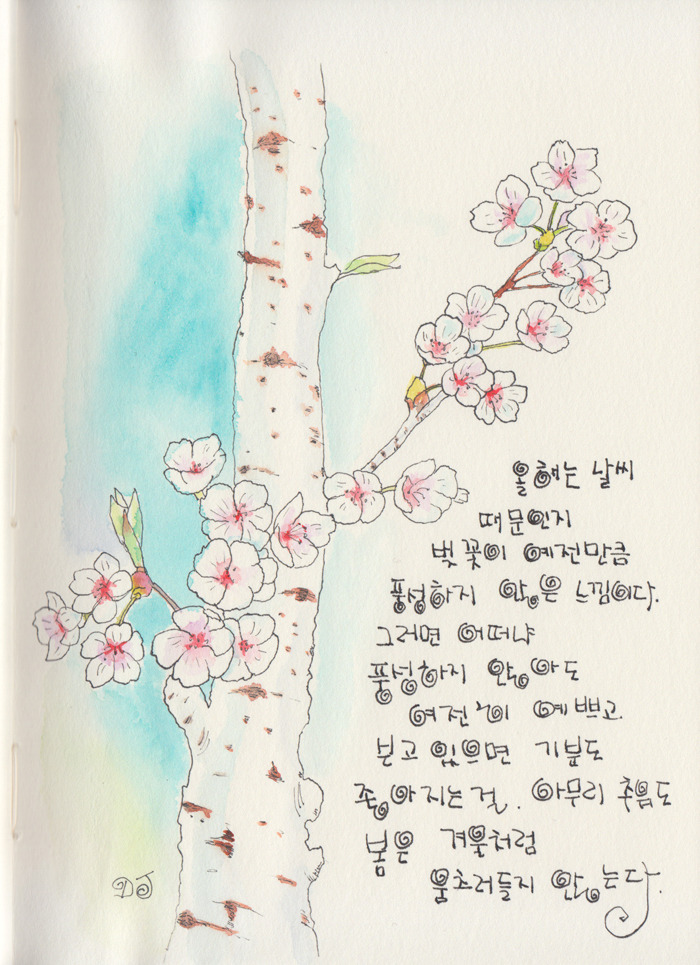 올해는 날씨
때문인지
벚꽃이 예전만큼
풍성하지 않은 느낌이다.
그러면 어떠냐
풍성하지 않아도
여전히 예쁘고
보고 있으면 기분도
좋아지는 걸. 아무리 추워도
봄은 겨울처럼
움츠러들지 않는다.
DJ